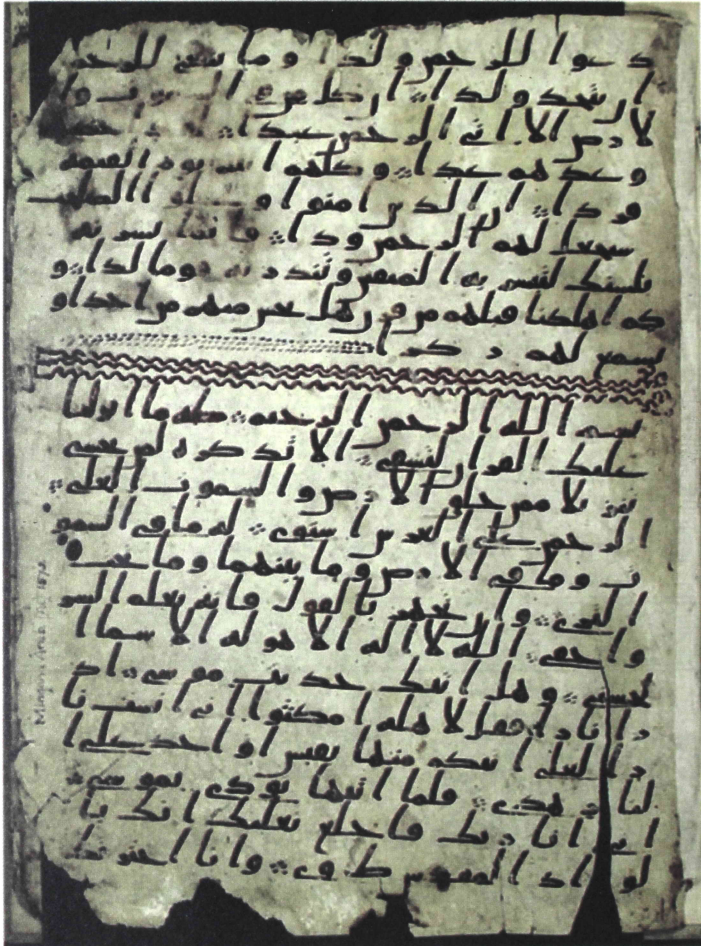 دعوا للرحمن ولدا ۝ وما ينبغي للرحمن
ان يتخذ ولدا ۝ ان كل من في السموت وا
لارض الا اتي الرحمن عبدا ۝ لقد احصهم
وعدهم عدا ۝ وكلهم اتيه يوم القيمه
فردا ۝ ان الذين امنوا وعملوا الصلحت
سيجعل لهم الرحمن ودا ۝ فانما يسرنه
بلسنك لتبشر به المتقين وتنذر به قوما لدا ۝ و
كم اهلكنا قبلهم من قرن هل تحس منهم من احد او
تسمع لهم ركزا
بسم الله الرحمن الرحيم ۝ طه ما انزلنا
عليك القران لتشقى ۝ الا تذكره لمن يخشى
تنزيلا ممن خلق الارض والسموت العلى ۝
الرحمن على العرش استوى ۝ له ما في السمو
ت وما في الارض وما بينهما وما تحت
الثرى ۝ وان تجهر بالقول فانه يعلم السر
واخفى ۝ الله لا اله الا هو له الاسما ا
لحسنى ۝ وهل اتيك حديث موسى ۝ اذ
را نارا فقل لاهله امكثوا اني انست نا
را لعلي اتيكم منها بقبس او اجد على ا
لنار هدى ۝ فلما اتيها نودي يموسى ۝
اني انا ربك فاخلع نعليك انك با
لواد المقدس طوى ۝ وانا اخترتك
Mingana Arab. Isl. 1572